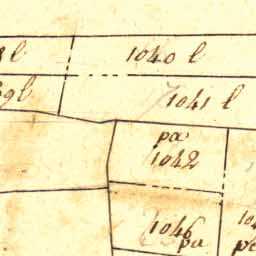 8l
1040 l
9l
1041 l
pa
1042
1046
pa